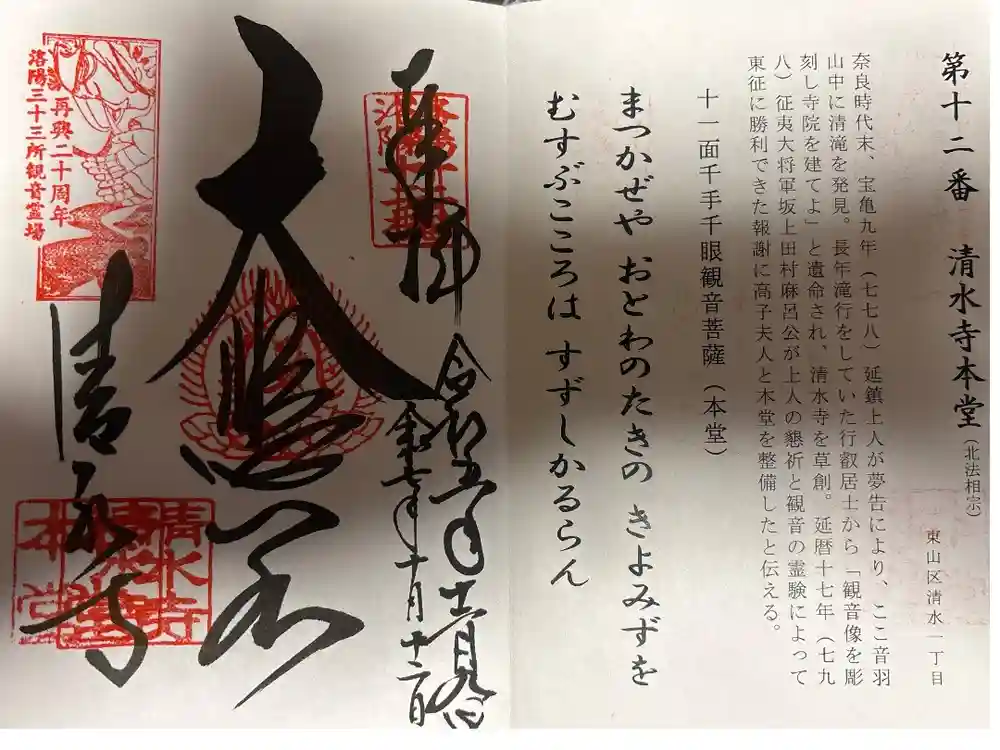 第十二番 清水寺本堂(北法相宗)
東山区清水一丁目
奈良時代末、宝亀九年(七七八)延鎮上人が夢告により、ここ音羽
山中に清滝を発見。長年滝行をしていた行叡居士から「観音像を彫
刻し寺院を建てよ」と遺命され、清水寺を草創。延暦十七年(七九
八)征夷大将軍坂上田村麻呂公が上人の懇祈と観音の霊験によって
東征に勝利できた報謝に高子夫人と本堂を整備したと伝える。
十一面千手千眼観音菩薩(本堂)
まつかぜや おとわのたきの きよみずを
むすぶこころは すずしかるらん
奉拝
令和五年十二月九日
令和七年十月十二日
大悲閣
清水寺
再興二十周年
洛陽三十三所観音霊場
清水寺
本堂